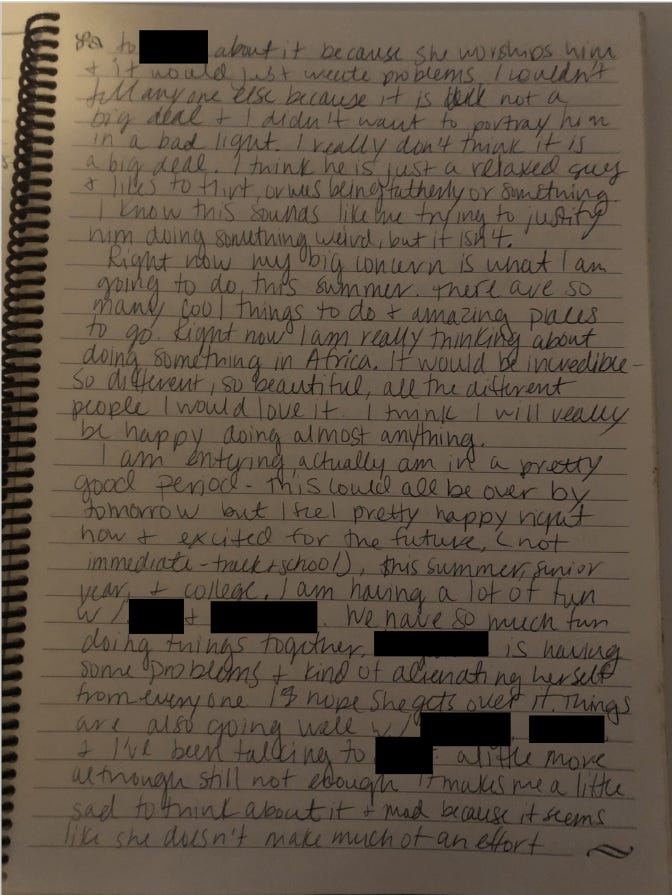 to about it because she worships him
+ it would just create problems. I wouldn't
tell anyone else because it is not a
big deal + I didn't want to portray him
in a bad light. I really don't think it is
a big deal. I think he is just a relaxed guy
+ likes to flirt, or was being fatherly or something.
I know this sounds like me trying to justify
him doing something weird, but it isn't.
Right now my big concern is what I am
going to do this summer. There are so
many cool things to do + amazing places
to go. Right now I am really thinking about
doing something in Africa. It would be incredible-
so different, so beautiful, all the different
people I would love it. I think I will really
be happy doing almost anything.
I am actually am in a pretty
good period - this could all be over by
tomorrow but I feel pretty happy right
now + excited for the future, (not
immediate - track + school), this summer, junior
year, + college. I am having a lot of fun
w/ + . We have so much fun
doing things together. is having
some problems + kind of alienating herself
from everyone I hope she gets over it. Things
are also going well w/ , ,
+ I've been talking to a little more
although still not enough it makes me a little
sad to think about it + mad because it seems
like she doesn't make much of an effort